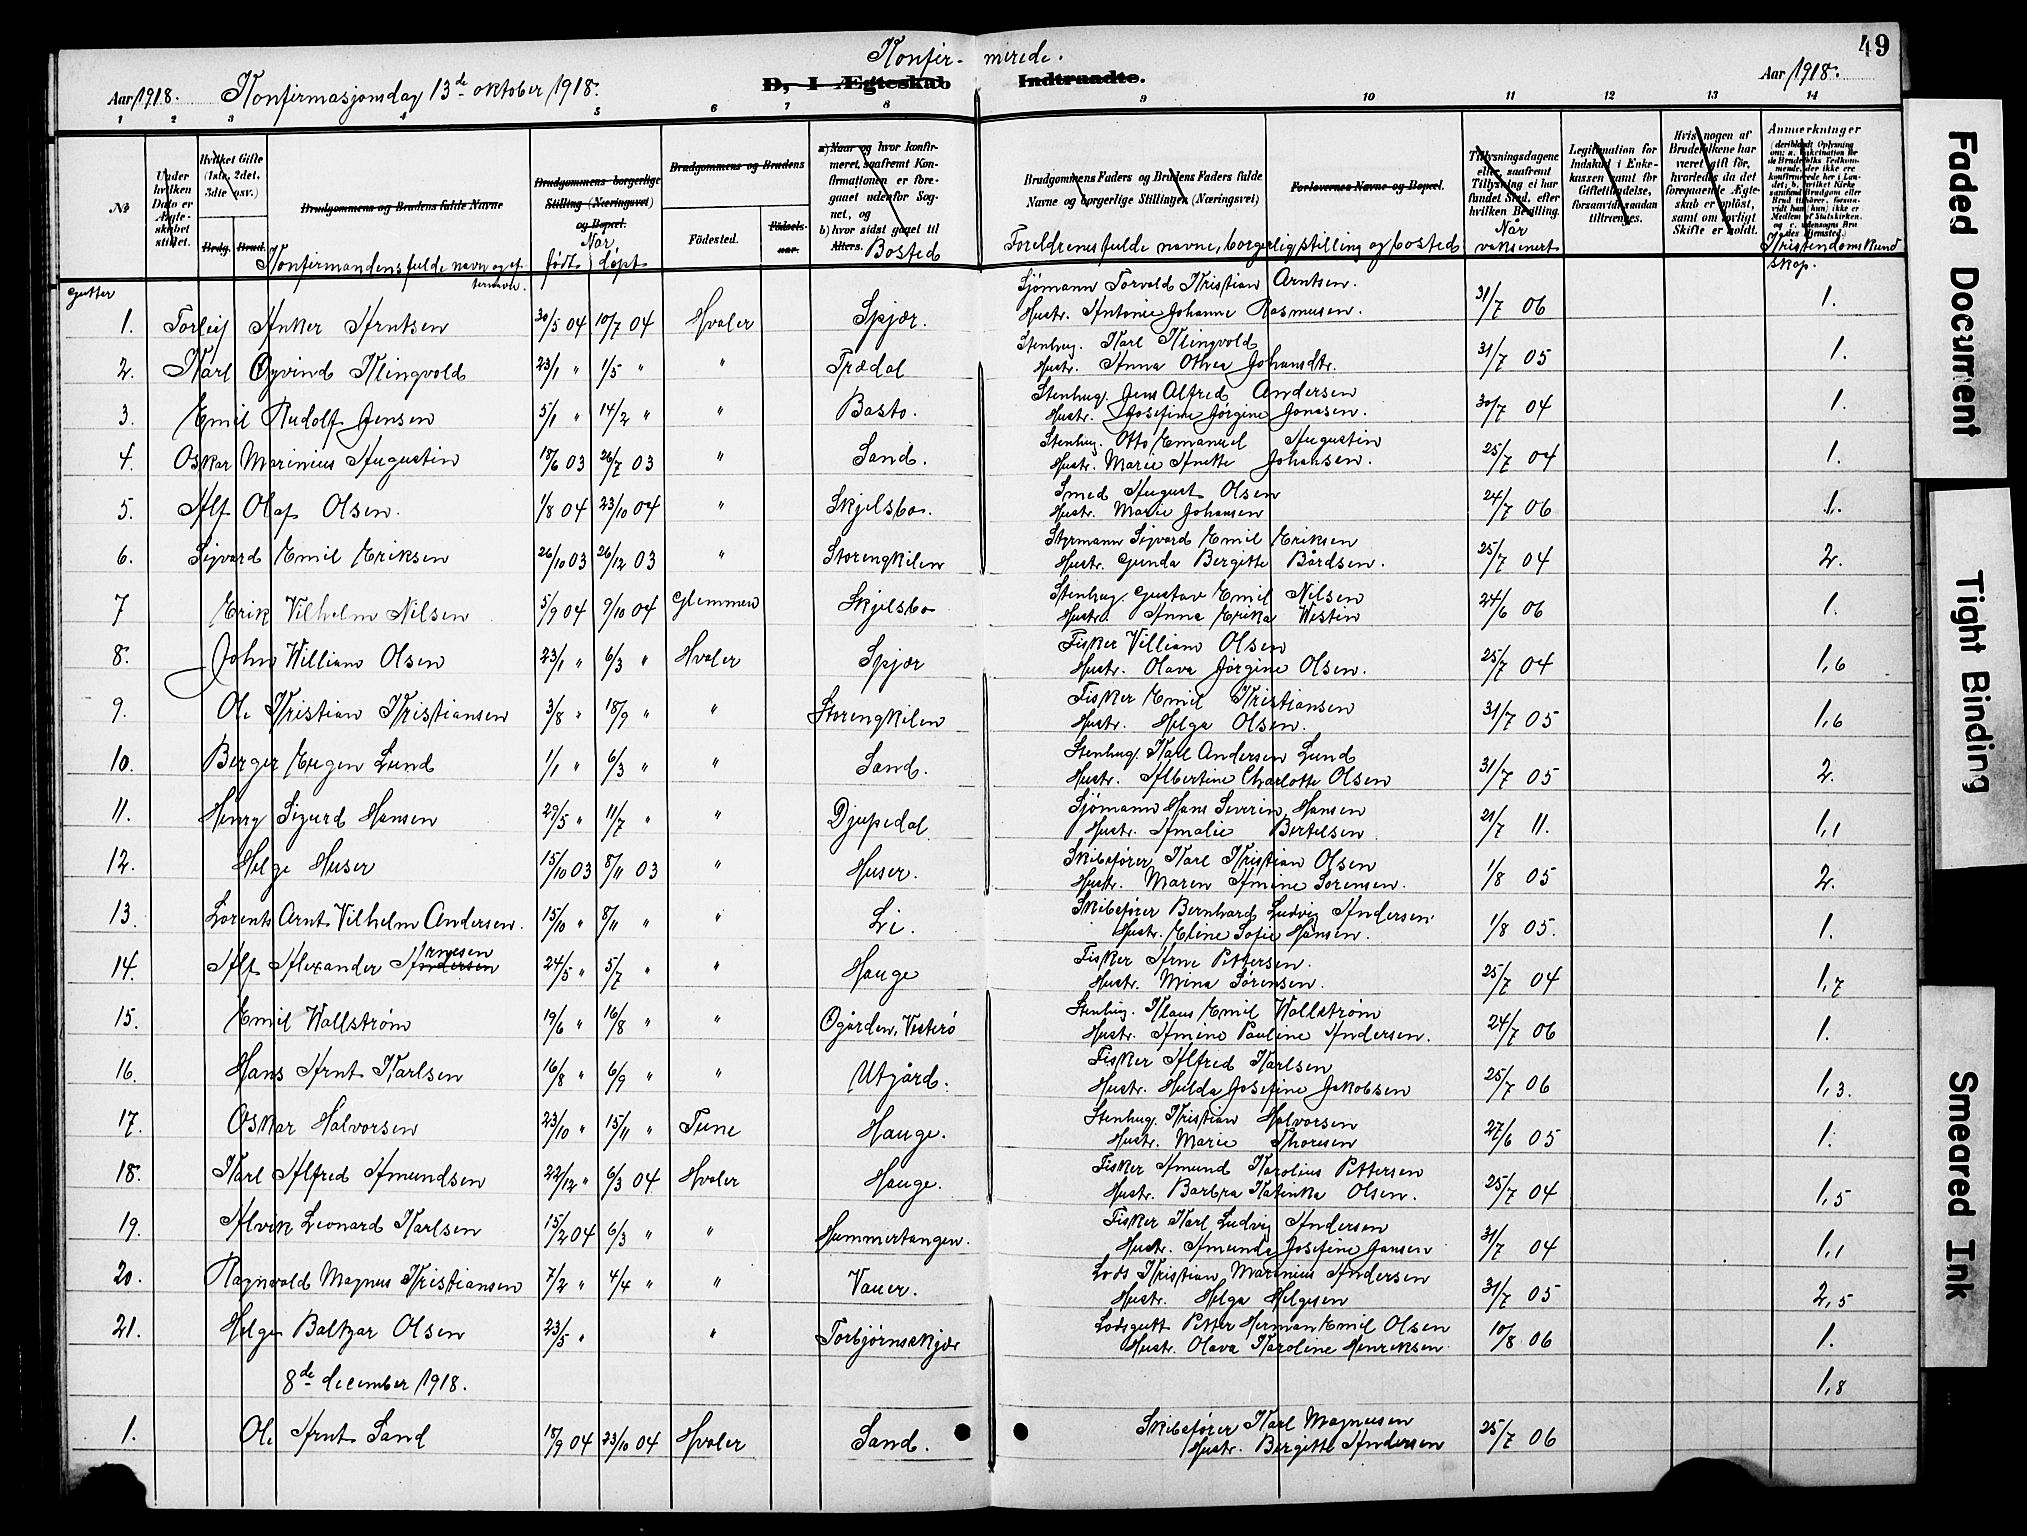 49
Konfir- merede.
D, I Ægteskab Indtraadte.
Aar 1918. Konfirmasjonsdag 13de oktober 1918. Aar 1918.
1 2 3 4 5 6 7 8 9 10 11 12 13 14
№
Under hvilken Dato er Ægteskabet stiftet.
Hvilket Gifte (1ste, 2det, 3die osv.)
Brdg. Brud.
Brudgommens og Brudens fulde Navne
Konfirmandens fulde navn og efternavn.
Brudgommens borgerlige Stilling (Næringsvei) og Bopæl.
Når født døpt
Brudgommens og Brudens
Födested. Födselsaar.
a) Naar og hvor konfirmeret, saafremt Konfirmationen er foregaaet udenfor Sognet, og
b) hvor sidst gaaet til Alters.
Bosted
Brudgommens Faders og Brudens Faders fulde Navne og borgerlige Stillinger (Næringsvei)
Forlovernes Navne og Bopæl.
Foreldrenes fulde navne, borgerlig stilling og bosted
Tillysningsdagene eller, saafremt Tillysning ei har fundet Sted, efter hvilken Bevilling.
Når vaksinert
Legitimation for Indskud i Enkekassen samt for Giftetilladelse, forsaavidt saadan tiltrænges.
Hvis nogen af Brudefolkene har været gift för, hvorledes da det foregaaende Ægteskab er oplöst, samt om lovligt Skifte er holdt.
Anmerkninger
Kristendomskundskap.
gutter
1. Torleif Anker Arntsen 30/5 04 10/7 04 Hvaler Spjær. Sjømann Torvald Kristian Arntsen. Hustr. Antonie Johanne Rasmusen. 31/7 06 1.
2. Karl Øyvind Klingvold 23/1 " 1/5 " " Trædal Stenhug. Karl Klingvold Hustr. Anna Othea Johansdtr. 31/7 05 1.
3. Emil Rudolf Jensen 5/1 " 14/2 " " Basto. Stenhug. Jens Alfred Andersen Hustr. Josefine Jørgine Jonasen. 30/7 04 1.
4. Oskar Marinius Augustin 18/6 03 26/7 03 " Sand. Stenhug. Otto Emanuel Augustin Hustr. Marie Anette Johansen. 25/7 04 1.
5. Alf Olaf Olsen. 1/8 04 23/10 04 " Skjelsbo. Smed August Olsen Hustr. Marie Johansen 24/7 06 1.
6. Sigvard Emil Eriksen 26/10 03 26/12 03 " Storengkilen Styrmann Sigvard Emil Eriksen Hustr. Gunda Bergitte Bårdsen. 25/7 04 2.
7 Erik Vilhelm Nilsen 5/9 04 9/10 04 Glemmen Skjelsbo Stenhug. Gustav Emil Nilsen Hustr. Anna Erika Westin 24/6 06 1.
8. John William Olsen 23/1 " 6/3 " Hvaler Spjær Fisker Villiam Olsen Hustr. Olava Jørgine Olsen. 25/7 04 1,6
9. Ole Kristian Kristiansen 3/8 " 18/9 " " Storengkilen Fisker Emil Kristiansen Hustr. Helga Olsen. 31/7 05 1,6
10. Berger Eugen Lund 1/1 " 6/3 " " Sand. Stenhug. Karl Andersen Lund Hustr. Albertine Charlotte Olsen 31/7 05 2.
11. Henry Sigurd Hansen 29/5 " 11/7 " " Djupedal Sjømann Hans Severin Hansen Hustr. Amalie Bertelsen 21/7 11. 1,1
12. Helge Huser 15/10 03 8/11 03 " Huser. Skibsfører Karl Kristian Olsen Hustr. Maren Amine Sørensen. 1/8 05 2.
13. Lorents Arnt Vilhelm Andersen. 15/10 " 8/11 " " Li. Skibsfører Bernhard Ludvig Andersen Hustr. Eline Sofie Hansen. 1/8 05. 1.
14. Alf Alexander Andersen Arnesen 24/5 " 5/7 " " Hauge Fisker Arne Pettersen. Hustr. Mina Sørensen. 25/7 04 1,7
15. Emil Wallstrøm 19/6 " 16/8 " " Øgården, Vesterö Stenhug. Klaus Emil Wallstrøm Hustr. Amine Pauline Andersen. 24/7 06 1.
16. Hans Arnt Karlsen 16/8 " 6/9 " " Utgård. Fisker Alfred Karlsen Hustr. Hulda Josefine Jakobsen 25/7 06 1,3.
17. Oskar Halvorsen 23/10 " 15/11 " Tune Hauge. Stenhug. Kristian Halvorsen Hustr. Marie Thoresen 27/6 05 1.
18. Karl Alfred Amundsen 22/12 " 6/3 04 Hvaler Hauge. Fisker Amund Karolius Pettersen Hustr. Barbra Katinka Olsen. 25/7 04 1,5
19. Alvik Leonard Karlsen 15/2 04 6/3 " " Hummertangen. Fisker Karl Ludvig Andersen Hustr. Amunda Josefine Jansen 31/7 04 1,1
20. Ragnvald Magnus Kristiansen 7/2 " 4/4 " " Vauer. Lods Kristian Marinius Andersen Hustr. Helga Helgesen 31/7 05 2,5
21. Helge Baltzar Olsen 23/5 " " Torbjørnskjær Lodsgutt Petter Herman Emil Olsen Hustr. Olava Karoline Henriksen 10/8 06 1.
8de december 1918. 1,8
1. Ole Arnt Sand 18/9 04 23/10 04 Hvaler Sand. Skibsfører Karl Magnusen Hustr. Bergitte Andersen 25/7 06
Faded Document
Tight Binding
Smeared Ink